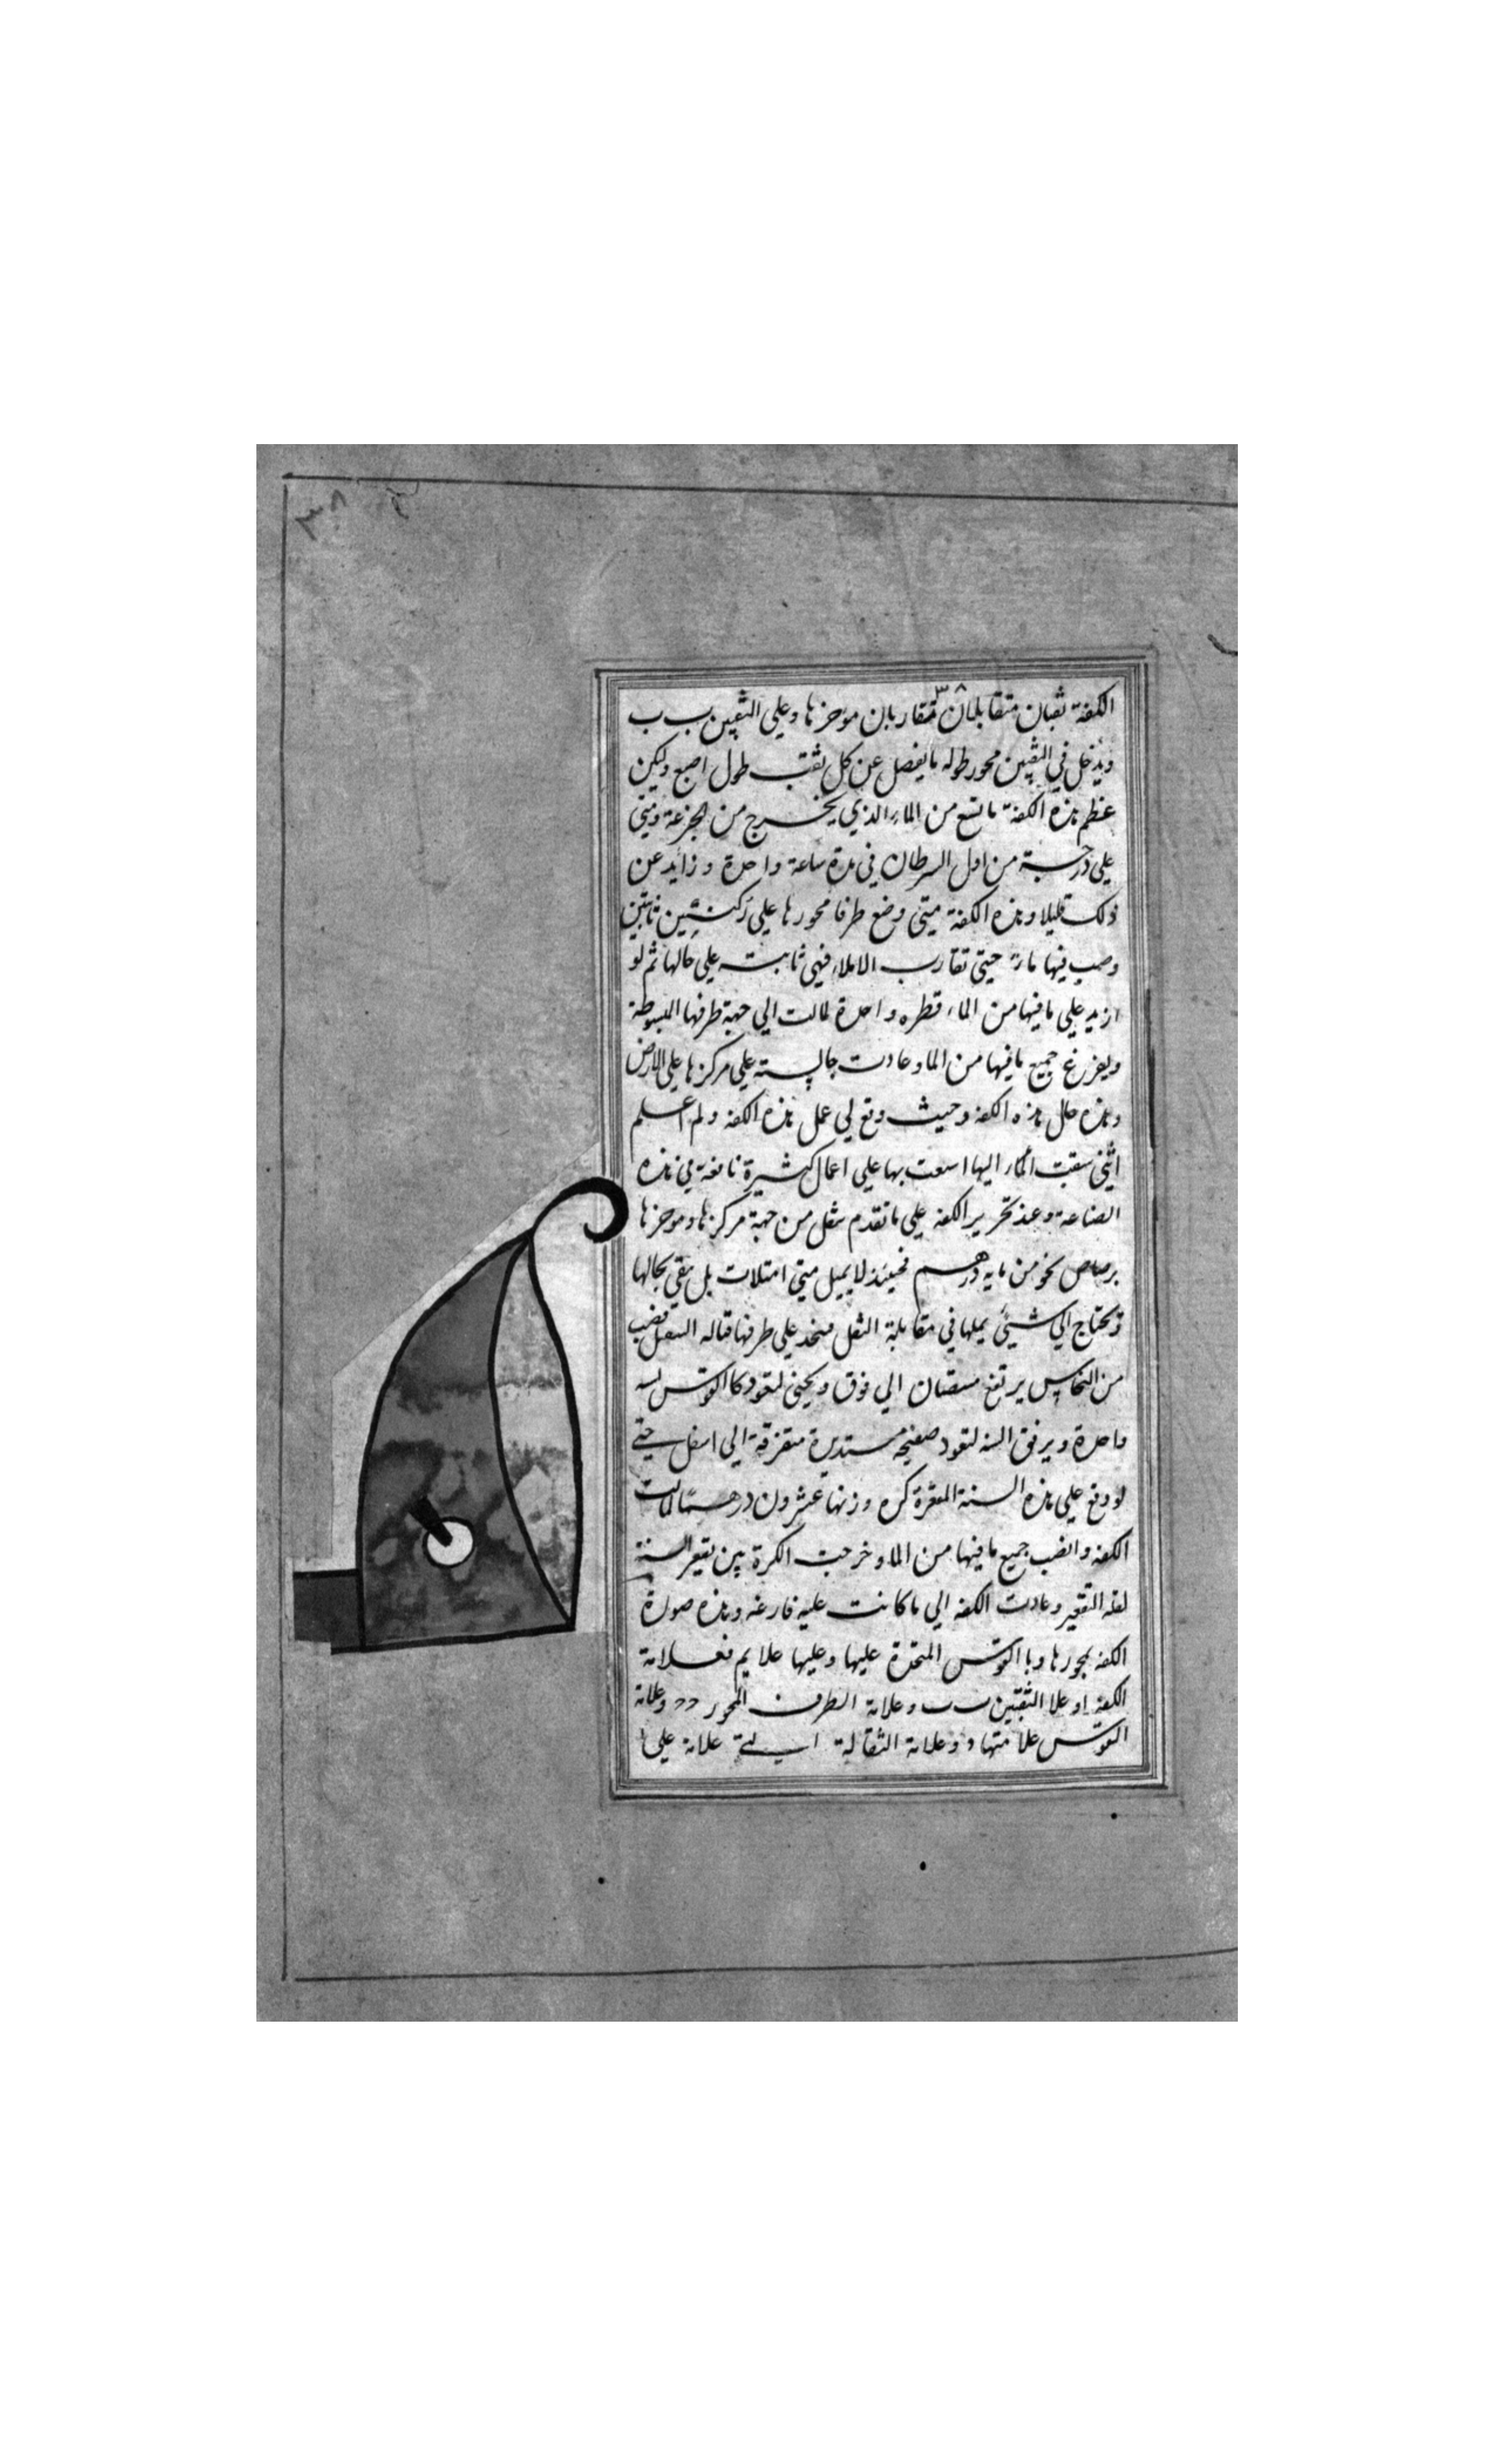 ٣٨
٣٨
الكفة ثقبان متقابلان متقاربان موخرها وعلى الثقبين ب ب
ويدخل في الثقبين محور طوله ما يفصل عن كل ثقب طول اصبع وليكن
عظم هذه الكفة ما تسع من الماء الذي يخرج من الجزعة ومتى
على درجة من اول السرطان في مدة ساعة واحدة وزايد عن
ذلك قليلا وهذه الكفة متى وضع طرفا محورها على ركنتين ثابتين
وصب فيها ماء حتى تقارب الاملاء فهي ثابتة على حالها ثم لو
ازيد على ما فيها من الماء قطره واحدة لمالت الى جهة طرفها المبسوطة
ويفرغ جميع ما فيها من الما وعادت جالسة على مركزها على الارض
وهذه حال هذه الكفه وحيث وقع لي عمل هذه الكفه ولم اعلم
انني سبقت اليها اسعت بها على اعمال كثيرة نافعة في هذه
الصناعة وعند تحرير الكفه على ما تقدم تثقل من جهة مركزها وموخرها
برصاص نحو من مايه درهم فحينئذ لا يميل متى امتلات بل تبقى بحالها
وتحتاج الى شيئ يميلها في مقابلة الثقل فيتخذ على طرفها قباله الثقل قضيب
من النحاس يرتفع الى فوق ويحنى لتعود كالقوس
واحدة ويرفق السنه لتعود صفيحه مستديرة متقعرة الى اسفل حتى
لو وقع على هذه السنة المقعرة كره وزنها عشرون درهما لمالت
الكفه وانصب جميع ما فيها من الما وخرجت الكرة من تقعير السنة
لقلة التقعير وعادت الكفه الى ما كانت عليه فارغه وهذه صورة
الكفه بمحورها وبا القوس المتخذة عليها وعليها علايم فعلامة
الكفة ا وعلا الثقبين ب ب وعلامة الطرف المحور د د وعلامة
القوس علامتها و وعلامة الثقالة علامة على ا